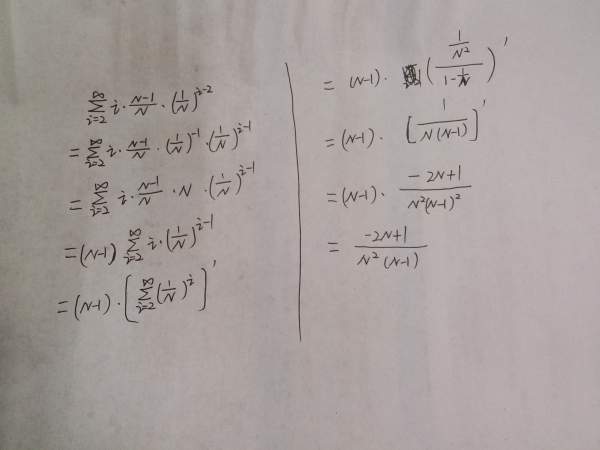 ∑_{i=2}^{∞} i · \frac{N-1}{N} · (\frac{1}{N})^{i-2}
= ∑_{i=2}^{∞} i · \frac{N-1}{N} · (\frac{1}{N})^{-1} · (\frac{1}{N})^{i-1}
= ∑_{i=2}^{∞} i · \frac{N-1}{N} · N · (\frac{1}{N})^{i-1}
= (N-1) ∑_{i=2}^{∞} i · (\frac{1}{N})^{i-1}
= (N-1) · [∑_{i=2}^{∞} (\frac{1}{N})^{i}]'
= (N-1) · (\frac{\frac{1}{N^2}}{1-\frac{1}{N}})'
= (N-1) · [\frac{1}{N(N-1)}]'
= (N-1) · \frac{-2N+1}{N^2(N-1)^2}
= \frac{-2N+1}{N^2(N-1)}